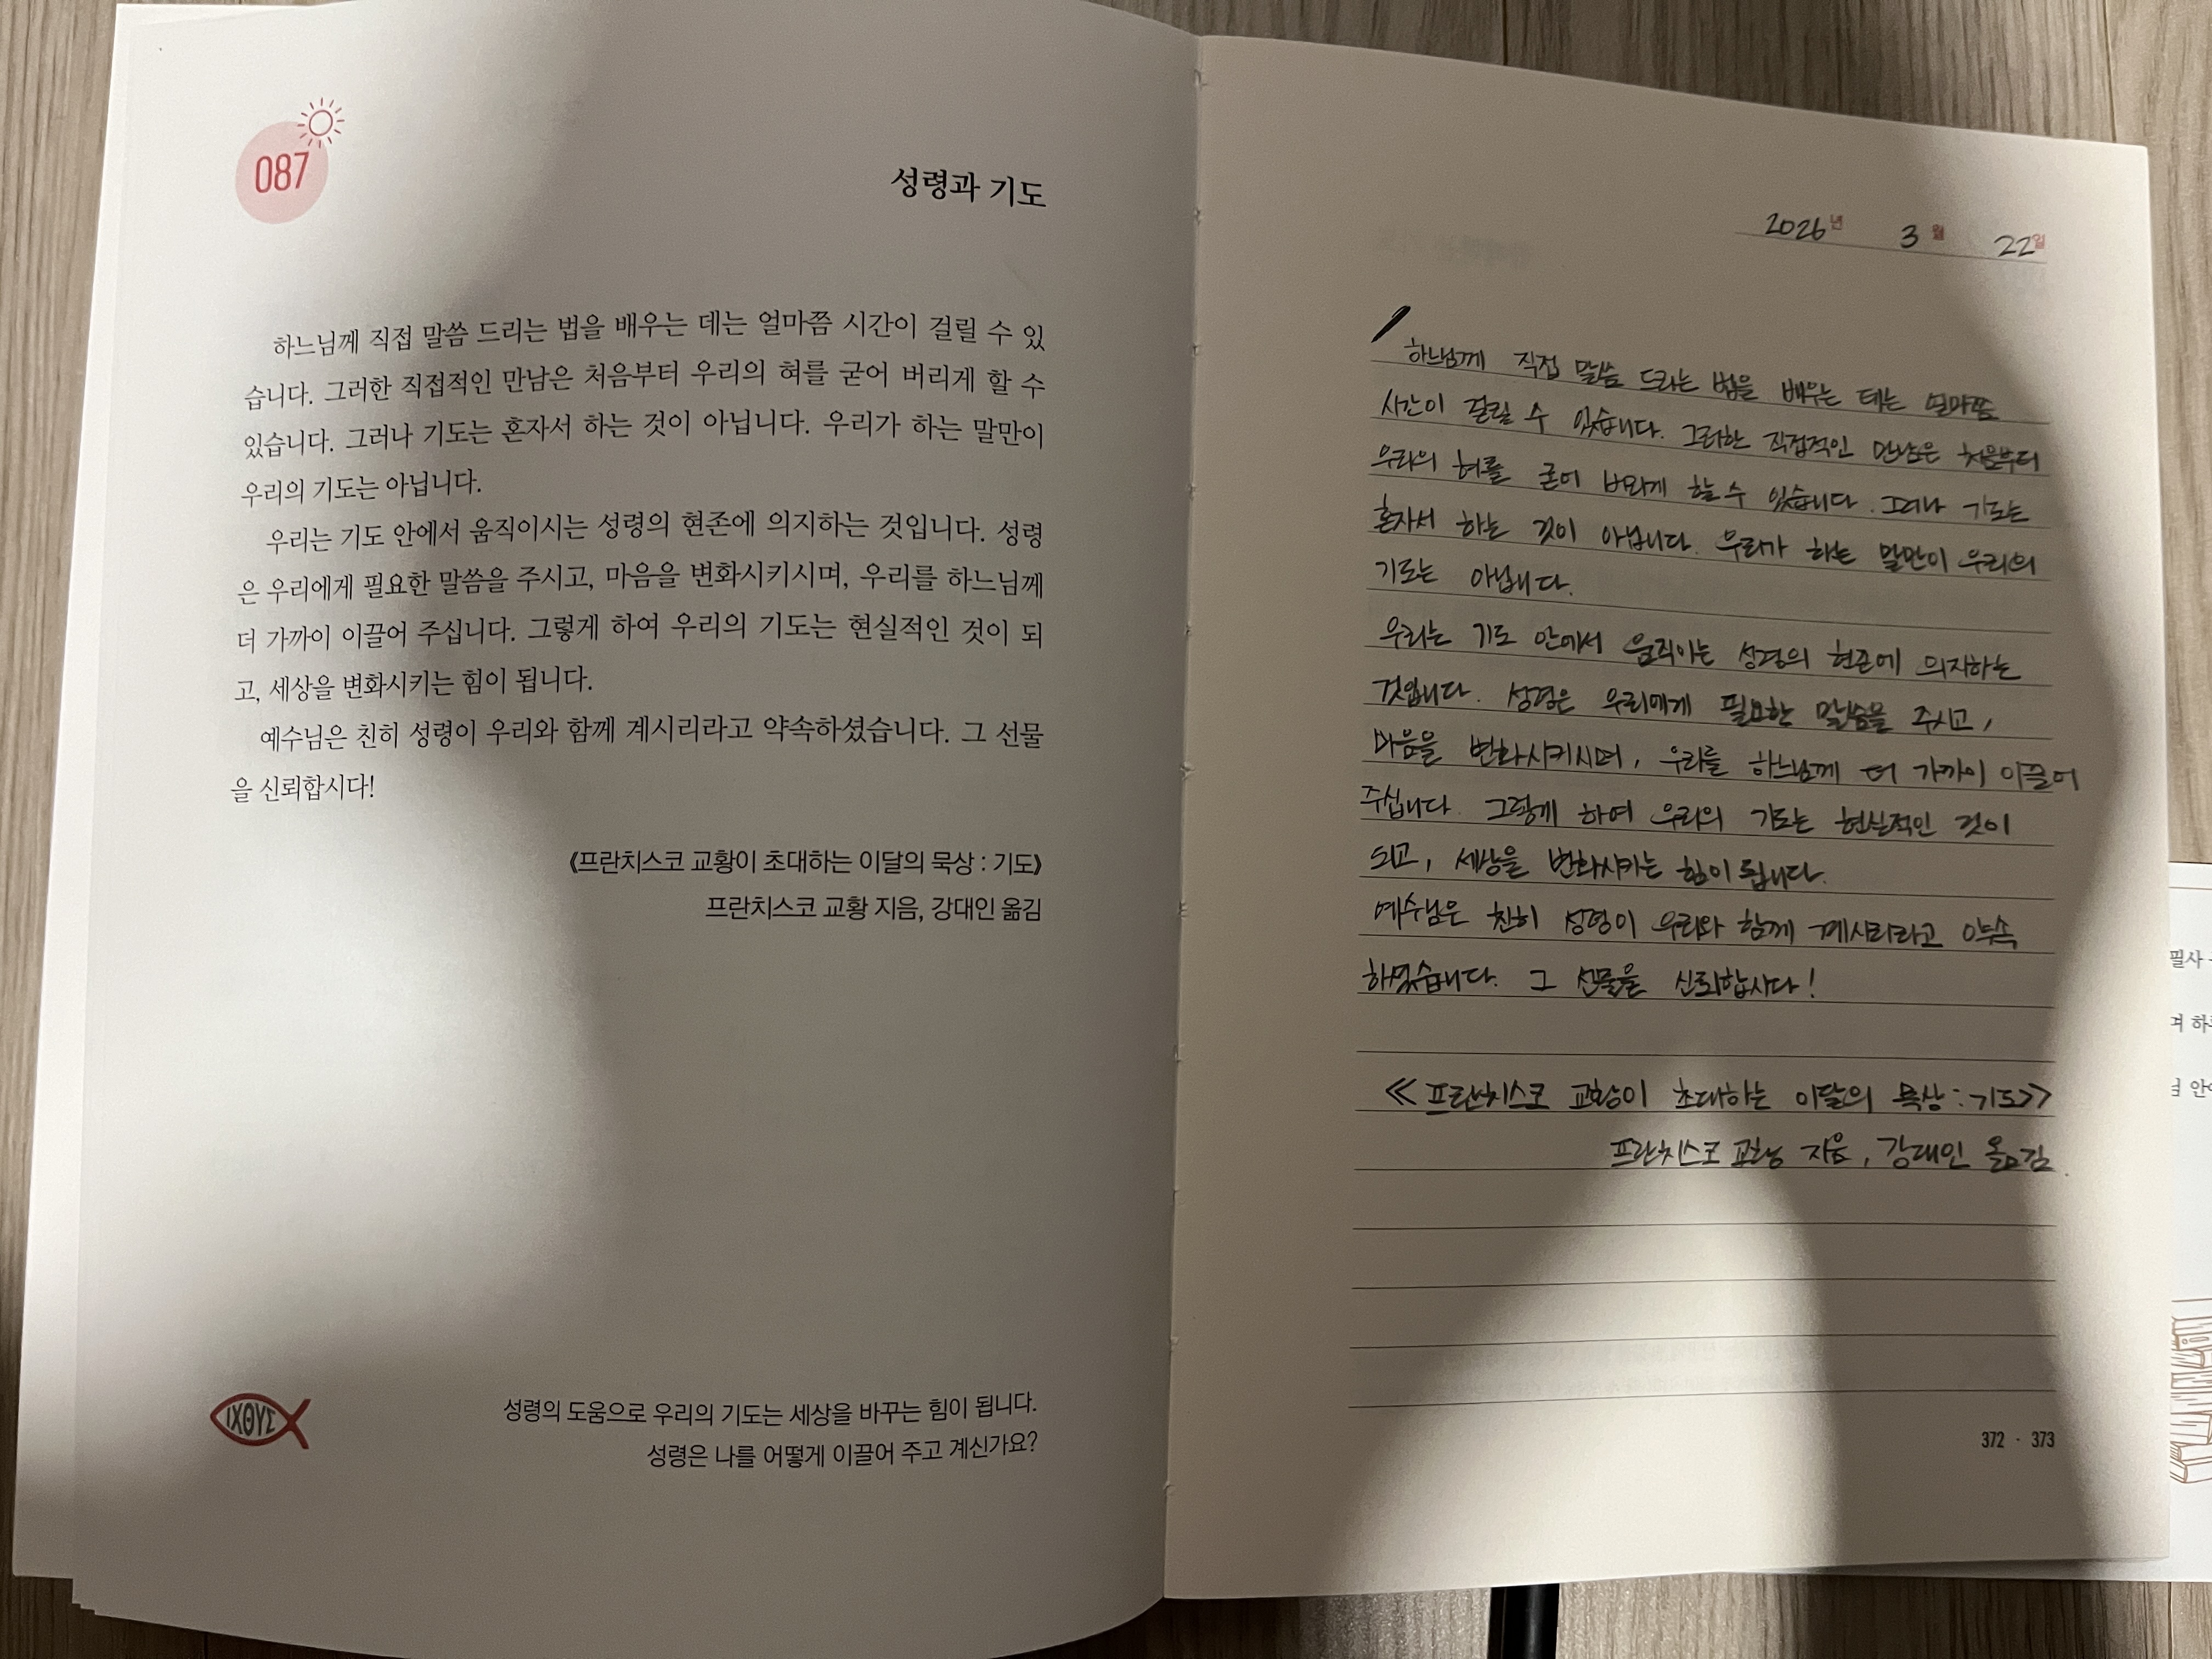 087
성령과 기도
하느님께 직접 말씀 드리는 법을 배우는 데는 얼마쯤 시간이 걸릴 수 있
습니다. 그러한 직접적인 만남은 처음부터 우리의 혀를 굳어 버리게 할 수
있습니다. 그러나 기도는 혼자서 하는 것이 아닙니다. 우리가 하는 말만이
우리의 기도는 아닙니다.
우리는 기도 안에서 움직이시는 성령의 현존에 의지하는 것입니다. 성령
은 우리에게 필요한 말씀을 주시고, 마음을 변화시키시며, 우리를 하느님께
더 가까이 이끌어 주십니다. 그렇게 하여 우리의 기도는 현실적인 것이 되
고, 세상을 변화시키는 힘이 됩니다.
예수님은 친히 성령이 우리와 함께 계시리라고 약속하셨습니다. 그 선물
을 신뢰합시다!
《프란치스코 교황이 초대하는 이달의 묵상 : 기도》
프란치스코 교황 지음, 강대인 옮김
ΙΧΘΥΣ
성령의 도움으로 우리의 기도는 세상을 바꾸는 힘이 됩니다.
성령은 나를 어떻게 이끌어 주고 계신가요?
2026년 3월 22일
하느님께 직접 말씀 드리는 법을 배우는 데는 얼마쯤
시간이 걸릴 수 있습니다. 그러한 직접적인 만남은 처음부터
우리의 혀를 굳어 버리게 할 수 있습니다. 그러나 기도는
혼자서 하는 것이 아닙니다. 우리가 하는 말만이 우리의
기도는 아닙니다.
우리는 기도 안에서 움직이는 성령의 현존에 의지하는
것입니다. 성령은 우리에게 필요한 말씀을 주시고,
마음을 변화시키시며, 우리를 하느님께 더 가까이 이끌어
주십니다. 그렇게 하여 우리의 기도는 현실적인 것이
되고, 세상을 변화시키는 힘이 됩니다.
예수님은 친히 성령이 우리와 함께 계시리라고 약속
하였습니다. 그 선물을 신뢰합시다!
≪프란치스코 교황이 초대하는 이달의 묵상 : 기도≫
프란치스코 교황 지음, 강대인 옮김.
372 · 373
필사
며 하
안에